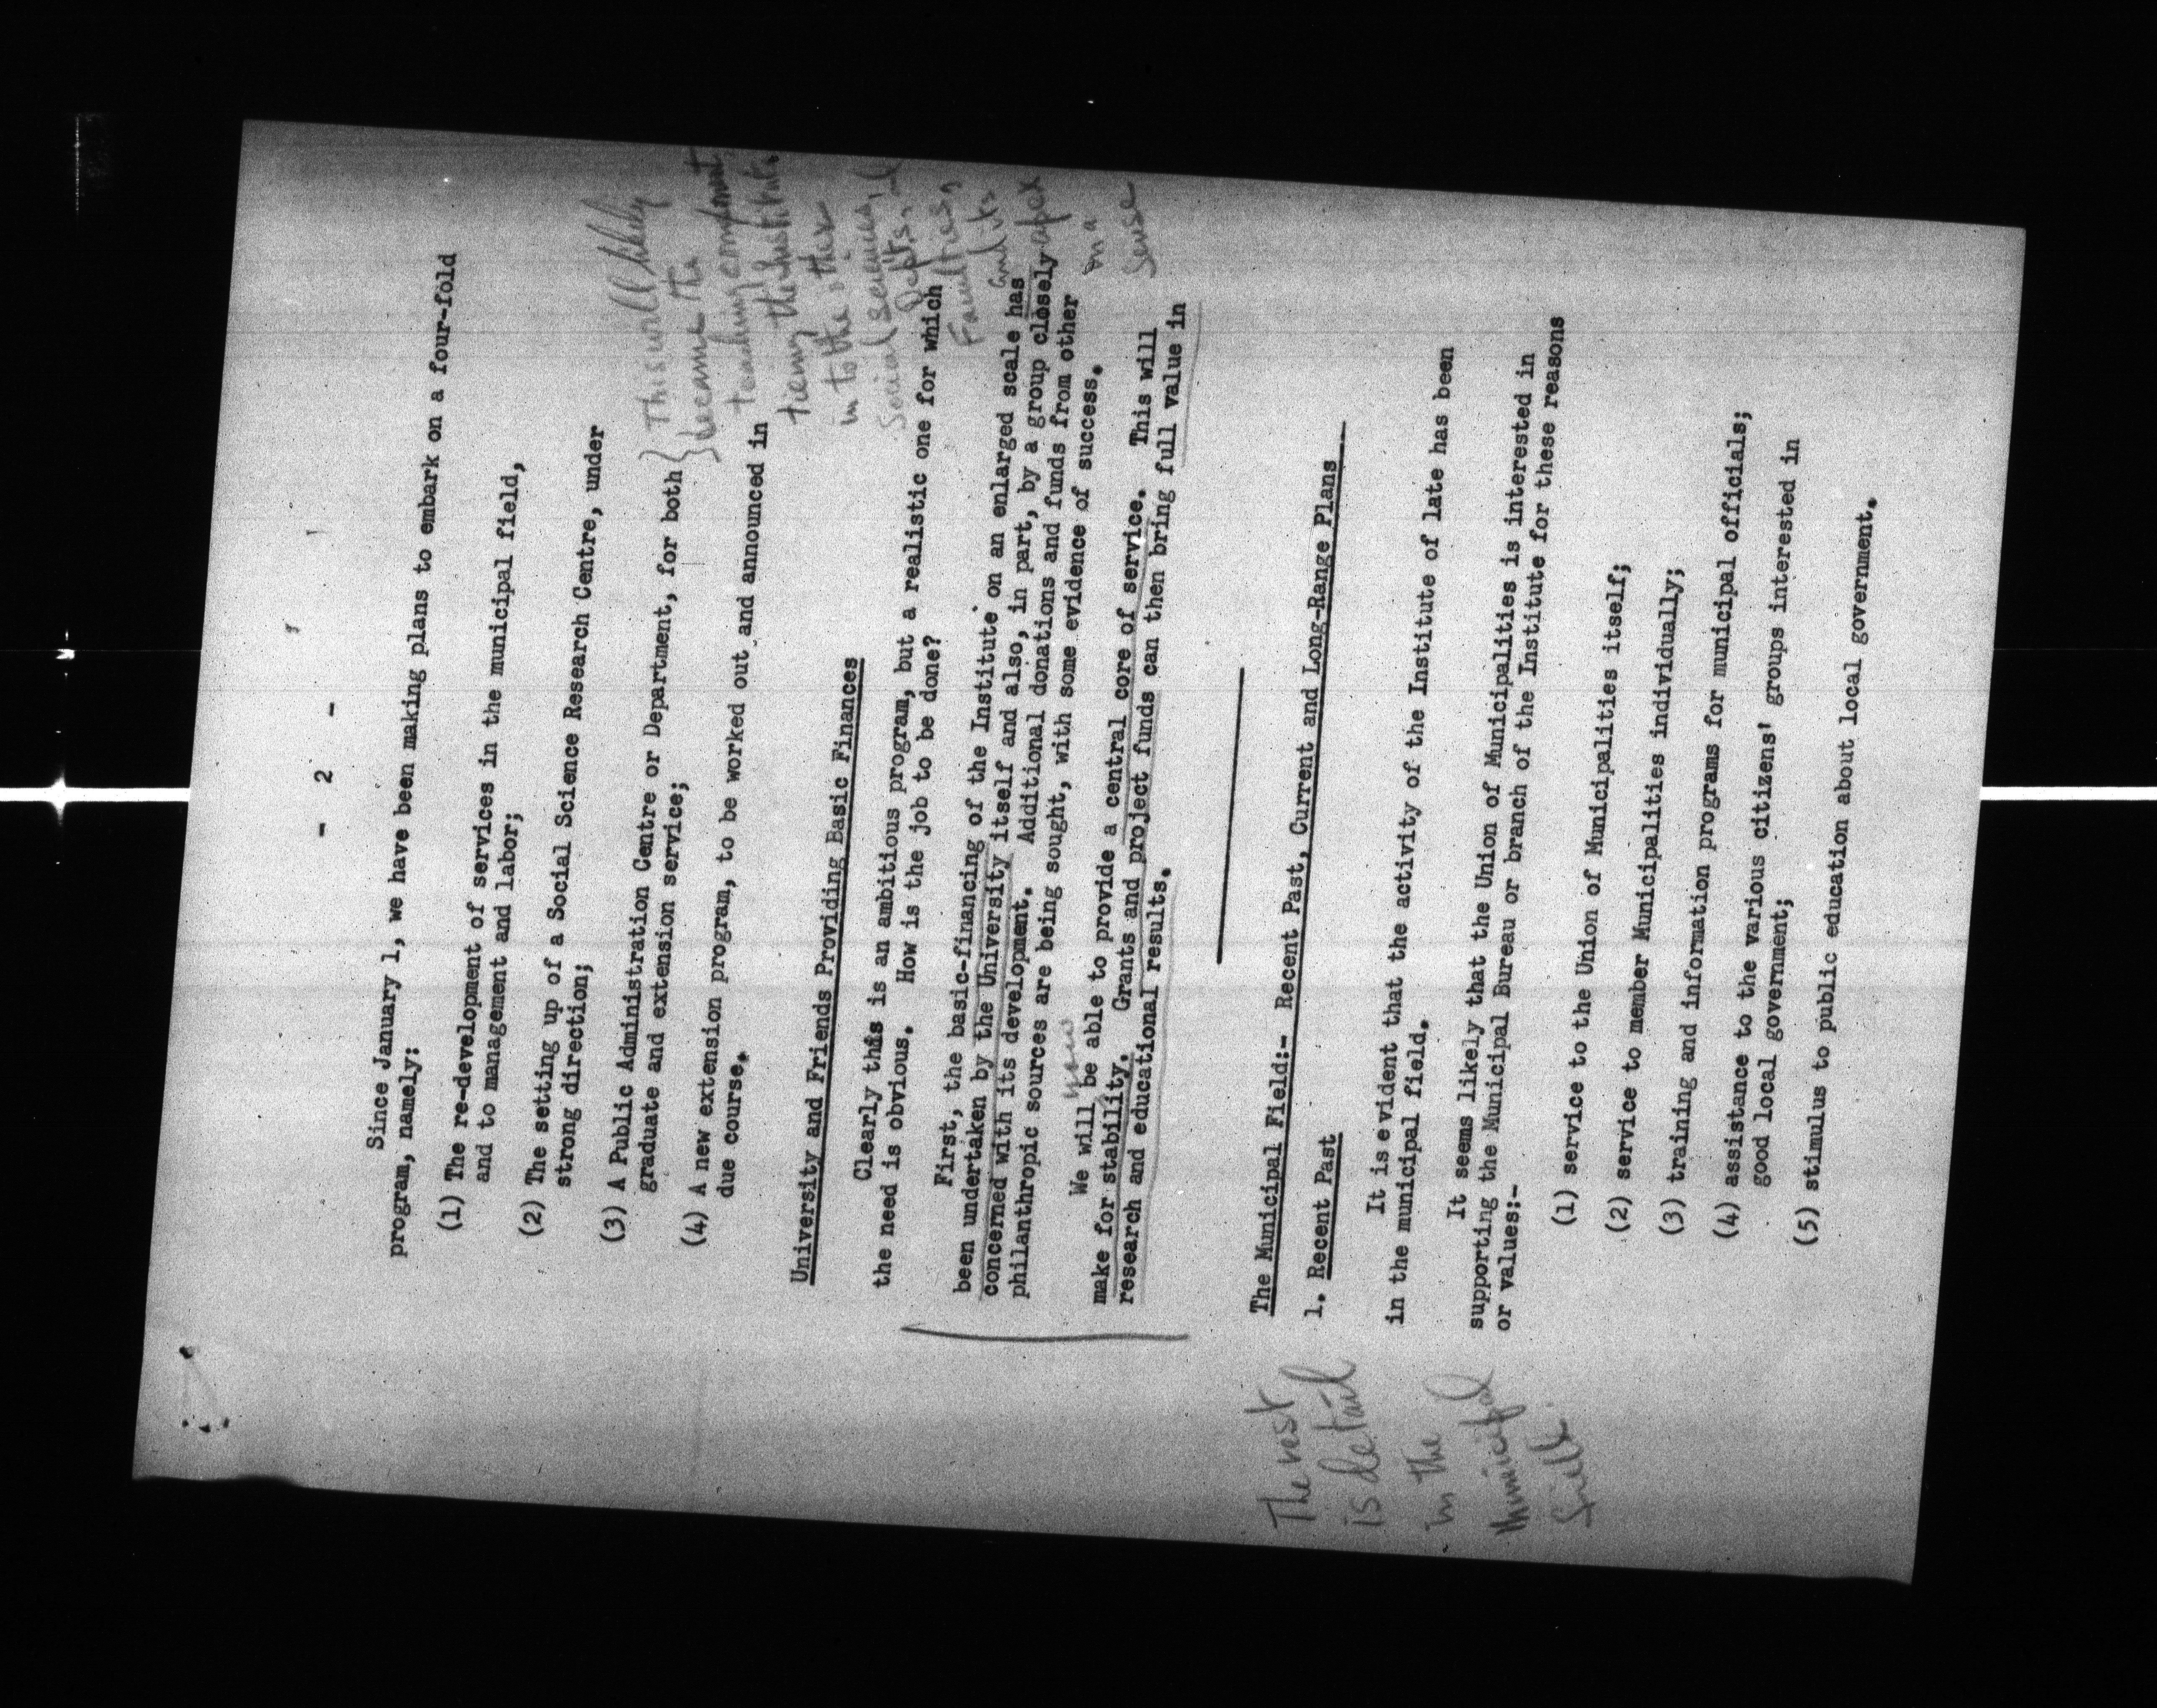 - 2 -
Since January 1, we have been making plans to embark on a four-fold
program, namely:
(1) The re-development of services in the municipal field,
and to management and labor;
(2) The setting up of a Social Science Research Centre, under
strong direction;
(3) A Public Administration Centre or Department, for both
graduate and extension service;
(4) A new extension program, to be worked out and announced in
due course.
This will likely
became the
teaching component
tieing the Institute
in to the other
Social Sciences,
Depts. and
Faculties,
and its
apex
in a
sense
University and Friends Providing Basic Finances
Clearly this is an ambitious program, but a realistic one for which
the need is obvious. How is the job to be done?
First, the basic-financing of the Institute on an enlarged scale has
been undertaken by the University itself and also, in part, by a group closely
concerned with its development. Additional donations and funds from other
philanthropic sources are being sought, with some evidence of success.
now
We will be able to provide a central core of service. This will
make for stability. Grants and project funds can then bring full value in
research and educational results.
The Municipal Field:- Recent Past, Current and Long-Range Plans
1. Recent Past
The rest
is detail
in the
Municipal
field.
It is evident that the activity of the Institute of late has been
in the municipal field.
It seems likely that the Union of Municipalities is interested in
supporting the Municipal Bureau or branch of the Institute for these reasons
or values:-
(1) service to the Union of Municipalities itself;
(2) service to member Municipalities individually;
(3) training and information programs for municipal officials;
(4) assistance to the various citizens' groups interested in
good local government;
(5) stimulus to public education about local government.